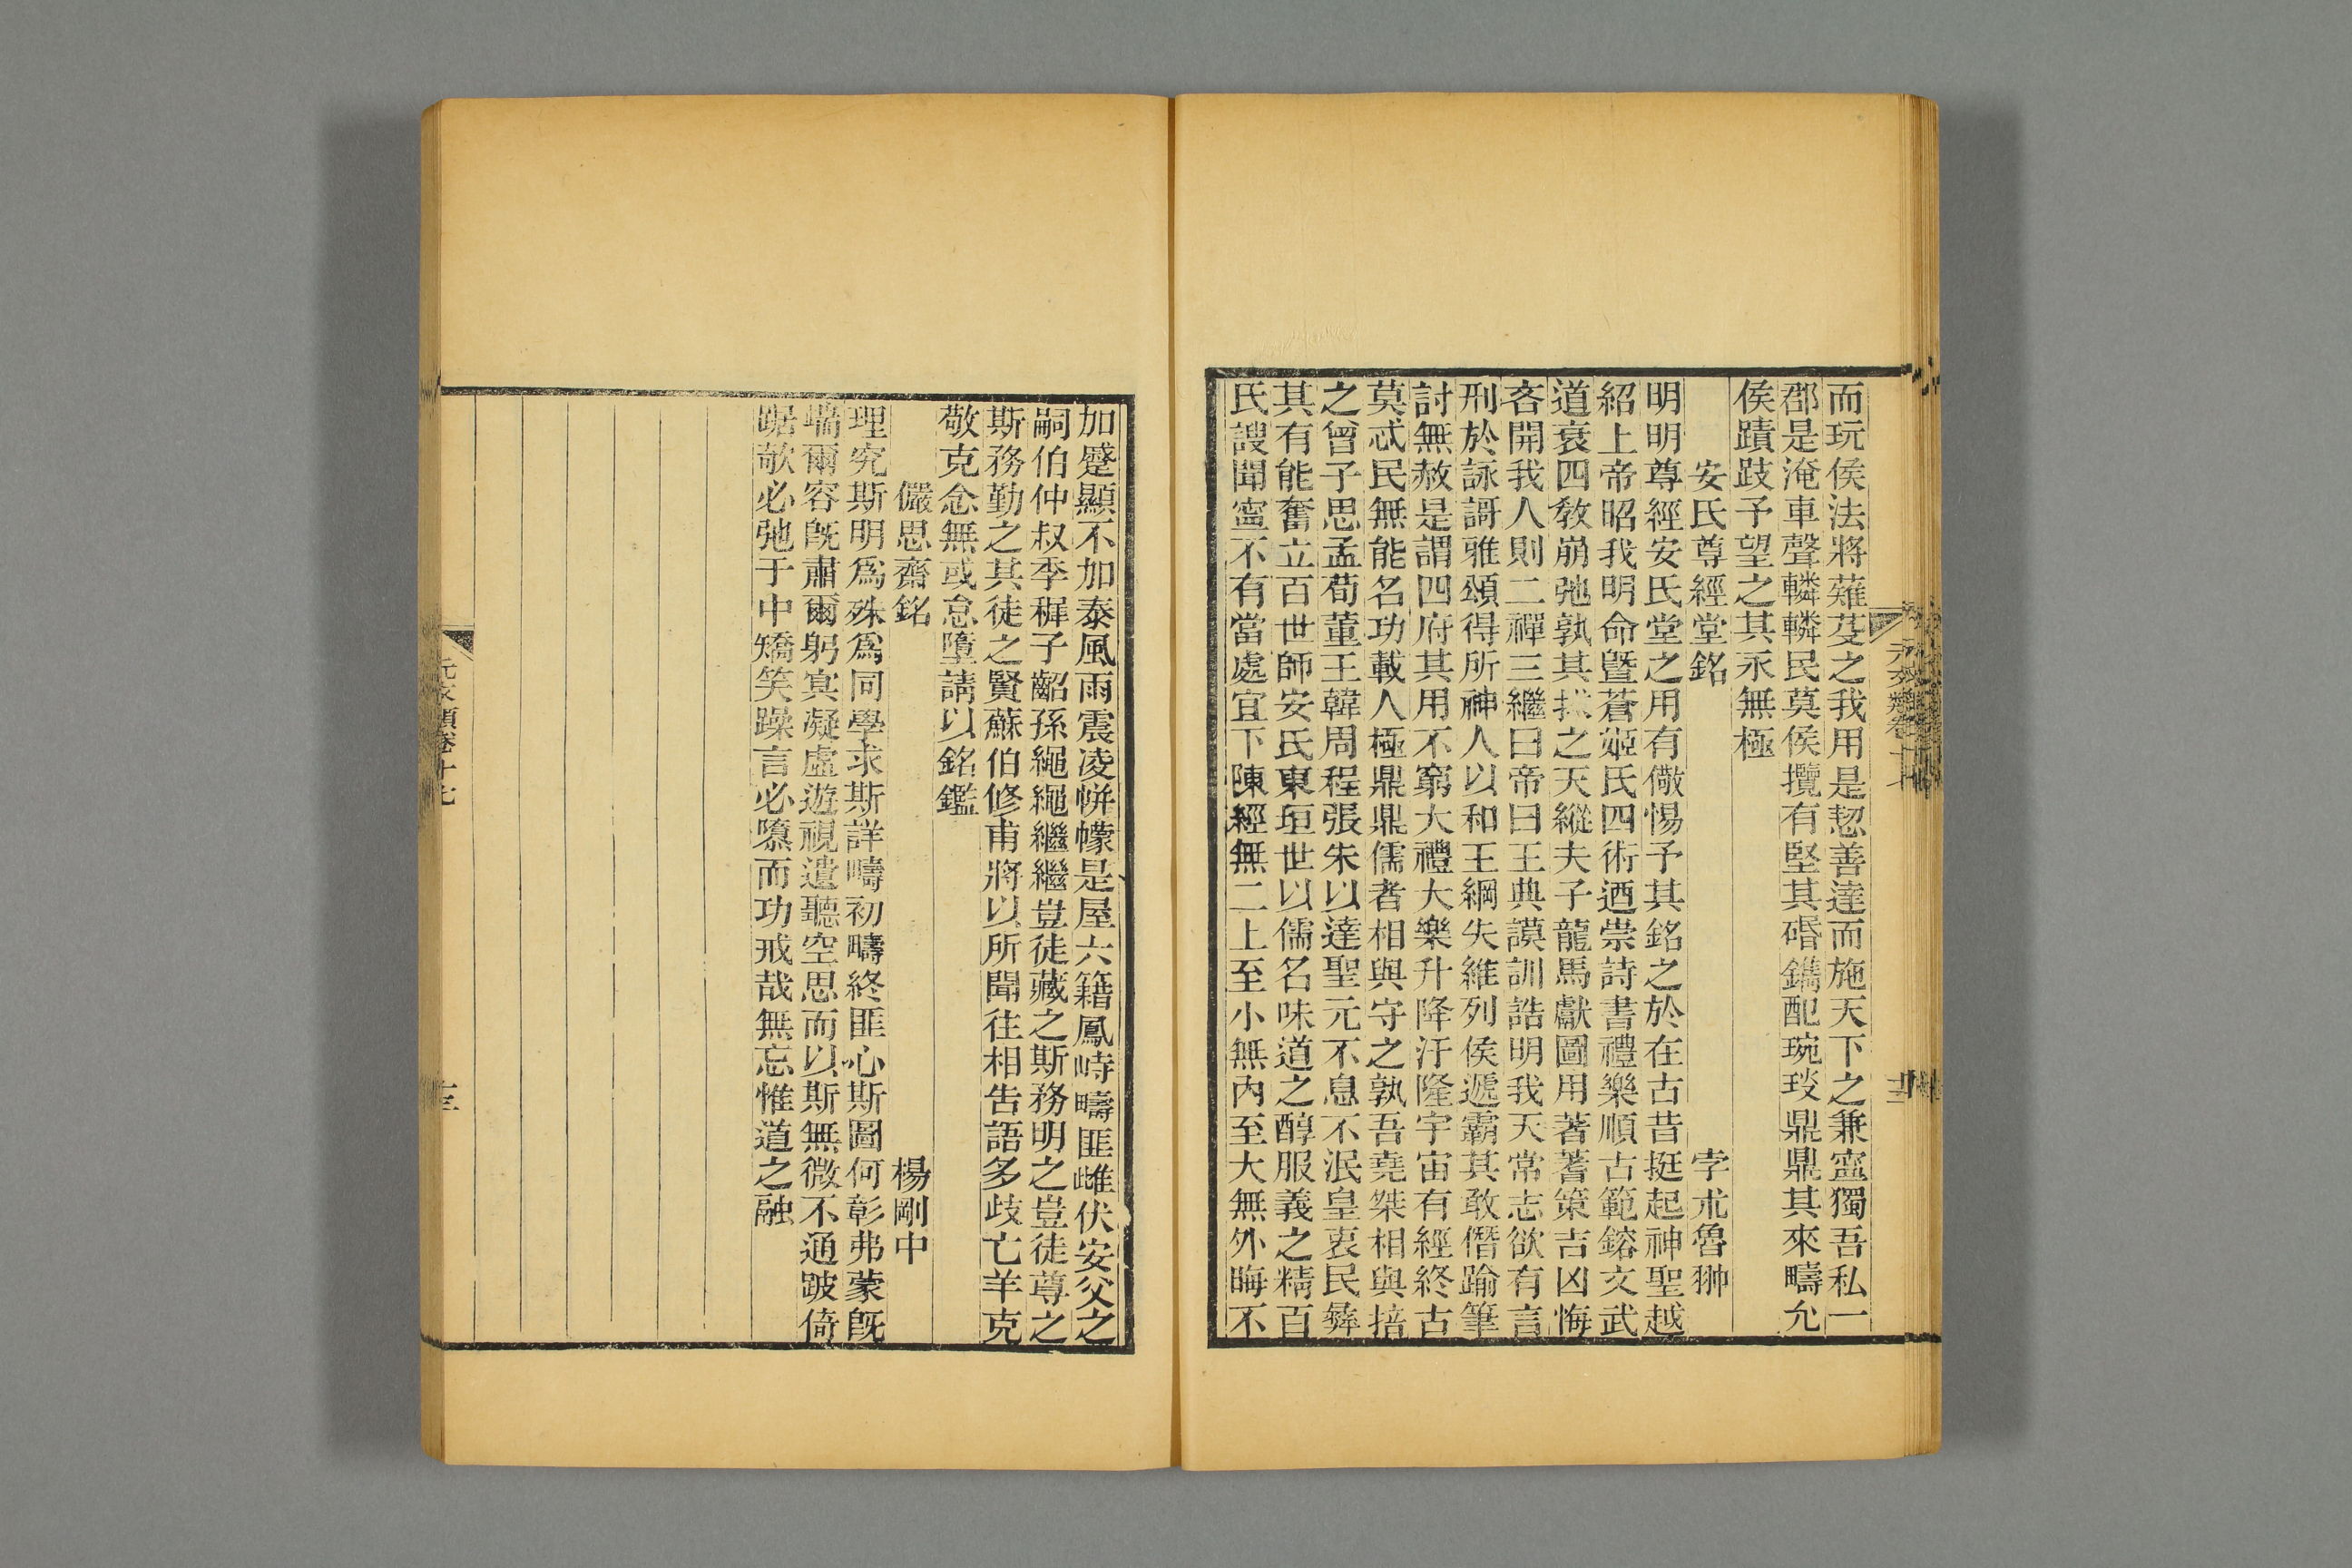 而玩侯法將薙芟之我用是恝善達而施天下之兼寍獨吾私一
郡是淹車聲轔轔民莫侯攬有堅其碈鐫配琬琰鼎鼎其來疇允
侯蹟跂予望之其永無極
安氏尊經堂銘 孛朮魯翀
明明尊經安氏堂之用有儆惕予其銘之於在古昔挺起神聖越
紹上帝昭我明命曁蒼姬氏四術迺崇詩書禮樂順古範鎔文武
道衰四敎崩弛孰其拯之天縱夫子龍馬獻圖用著蓍策吉凶悔
吝開我人則二禪三繼曰帝曰王典謨訓誥明我天常志欲有言
刑於詠謌雅頌得所神人以和王綱失維列侯遞霸其敢僭踰筆
討無赦是謂四府其用不窮大禮大樂升降汙隆宇宙有經終古
莫忒民無能名功載人極鼎鼎儒者相與守之孰吾堯桀相與掊
之曾子思孟荀董王韓周程張朱以達聖元不息不泯皇衷民彝
其有能奮立百世師安氏東垣世以儒名味道之醇服義之精百
氏謏聞寍不有當處宜下陳經無二上至小無內至大無外晦不
元文類卷十七 十二
加蹙顯不加泰風雨震凌帡幪是屋六籍鳳峙疇匪雌伏安父之
嗣伯仲叔季稺子齠孫繩繩繼繼豈徒藏之斯務明之豈徒尊之
斯務勤之其徒之賢蘇伯修甫將以所聞往相告語多歧亡羊克
敬克念無或怠墮請以銘鑑
儼思齋銘 楊剛中
理究斯明爲殊爲同學求斯詳疇初疇終匪心斯圖何彰弗蒙旣
端爾容旣肅爾躬寘凝虛遊視遺聽空思而以斯無微不通跛倚
踞欹必弛于中矯笑躁言必隳而功戒哉無忘惟道之融
元文類卷十七 十三